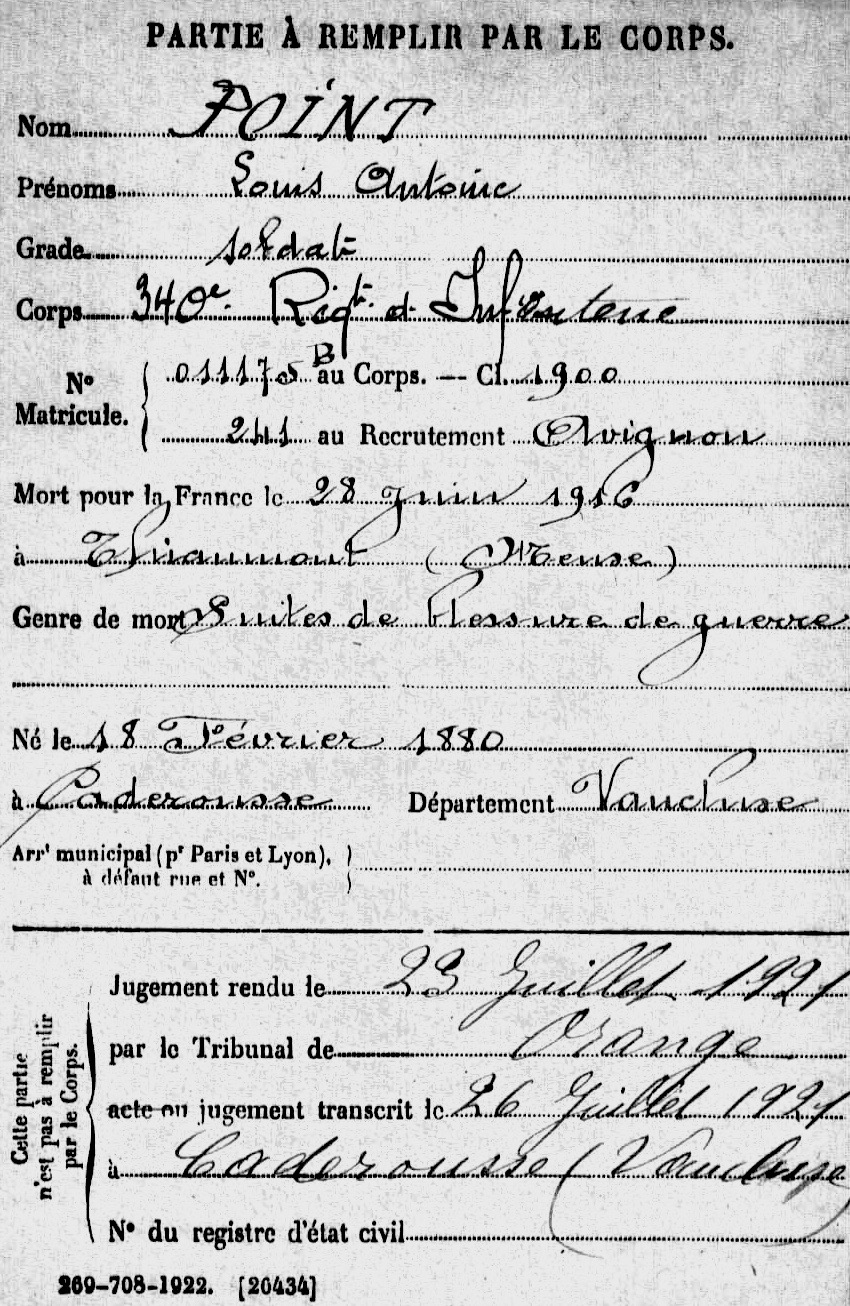 PARTIE À REMPLIR PAR LE CORPS.
Nom POINT
Prénoms Louis Antoine
Grade soldat
Corps 340e Rigt. d'Infanterie
N° Matricule. 011175 B au Corps. — Cl. 1900
241 au Recrutement Avignon
Mort pour la France le 28 Juin 1916
à Thiaumont (Meuse)
Genre de mort Suites de blessure de guerre
Né le 18 Février 1880
à Caderousse Département Vaucluse
Arrt municipal (pr Paris et Lyon),
à défaut rue et N°.
Cette partie n'est pas à remplir par le Corps.
Jugement rendu le 23 Juillet 1921
par le Tribunal de Orange
acte ou jugement transcrit le 26 Juillet 1921
à Caderousse (Vaucluse)
N° du registre d'état civil
269-708-1922. [20434]